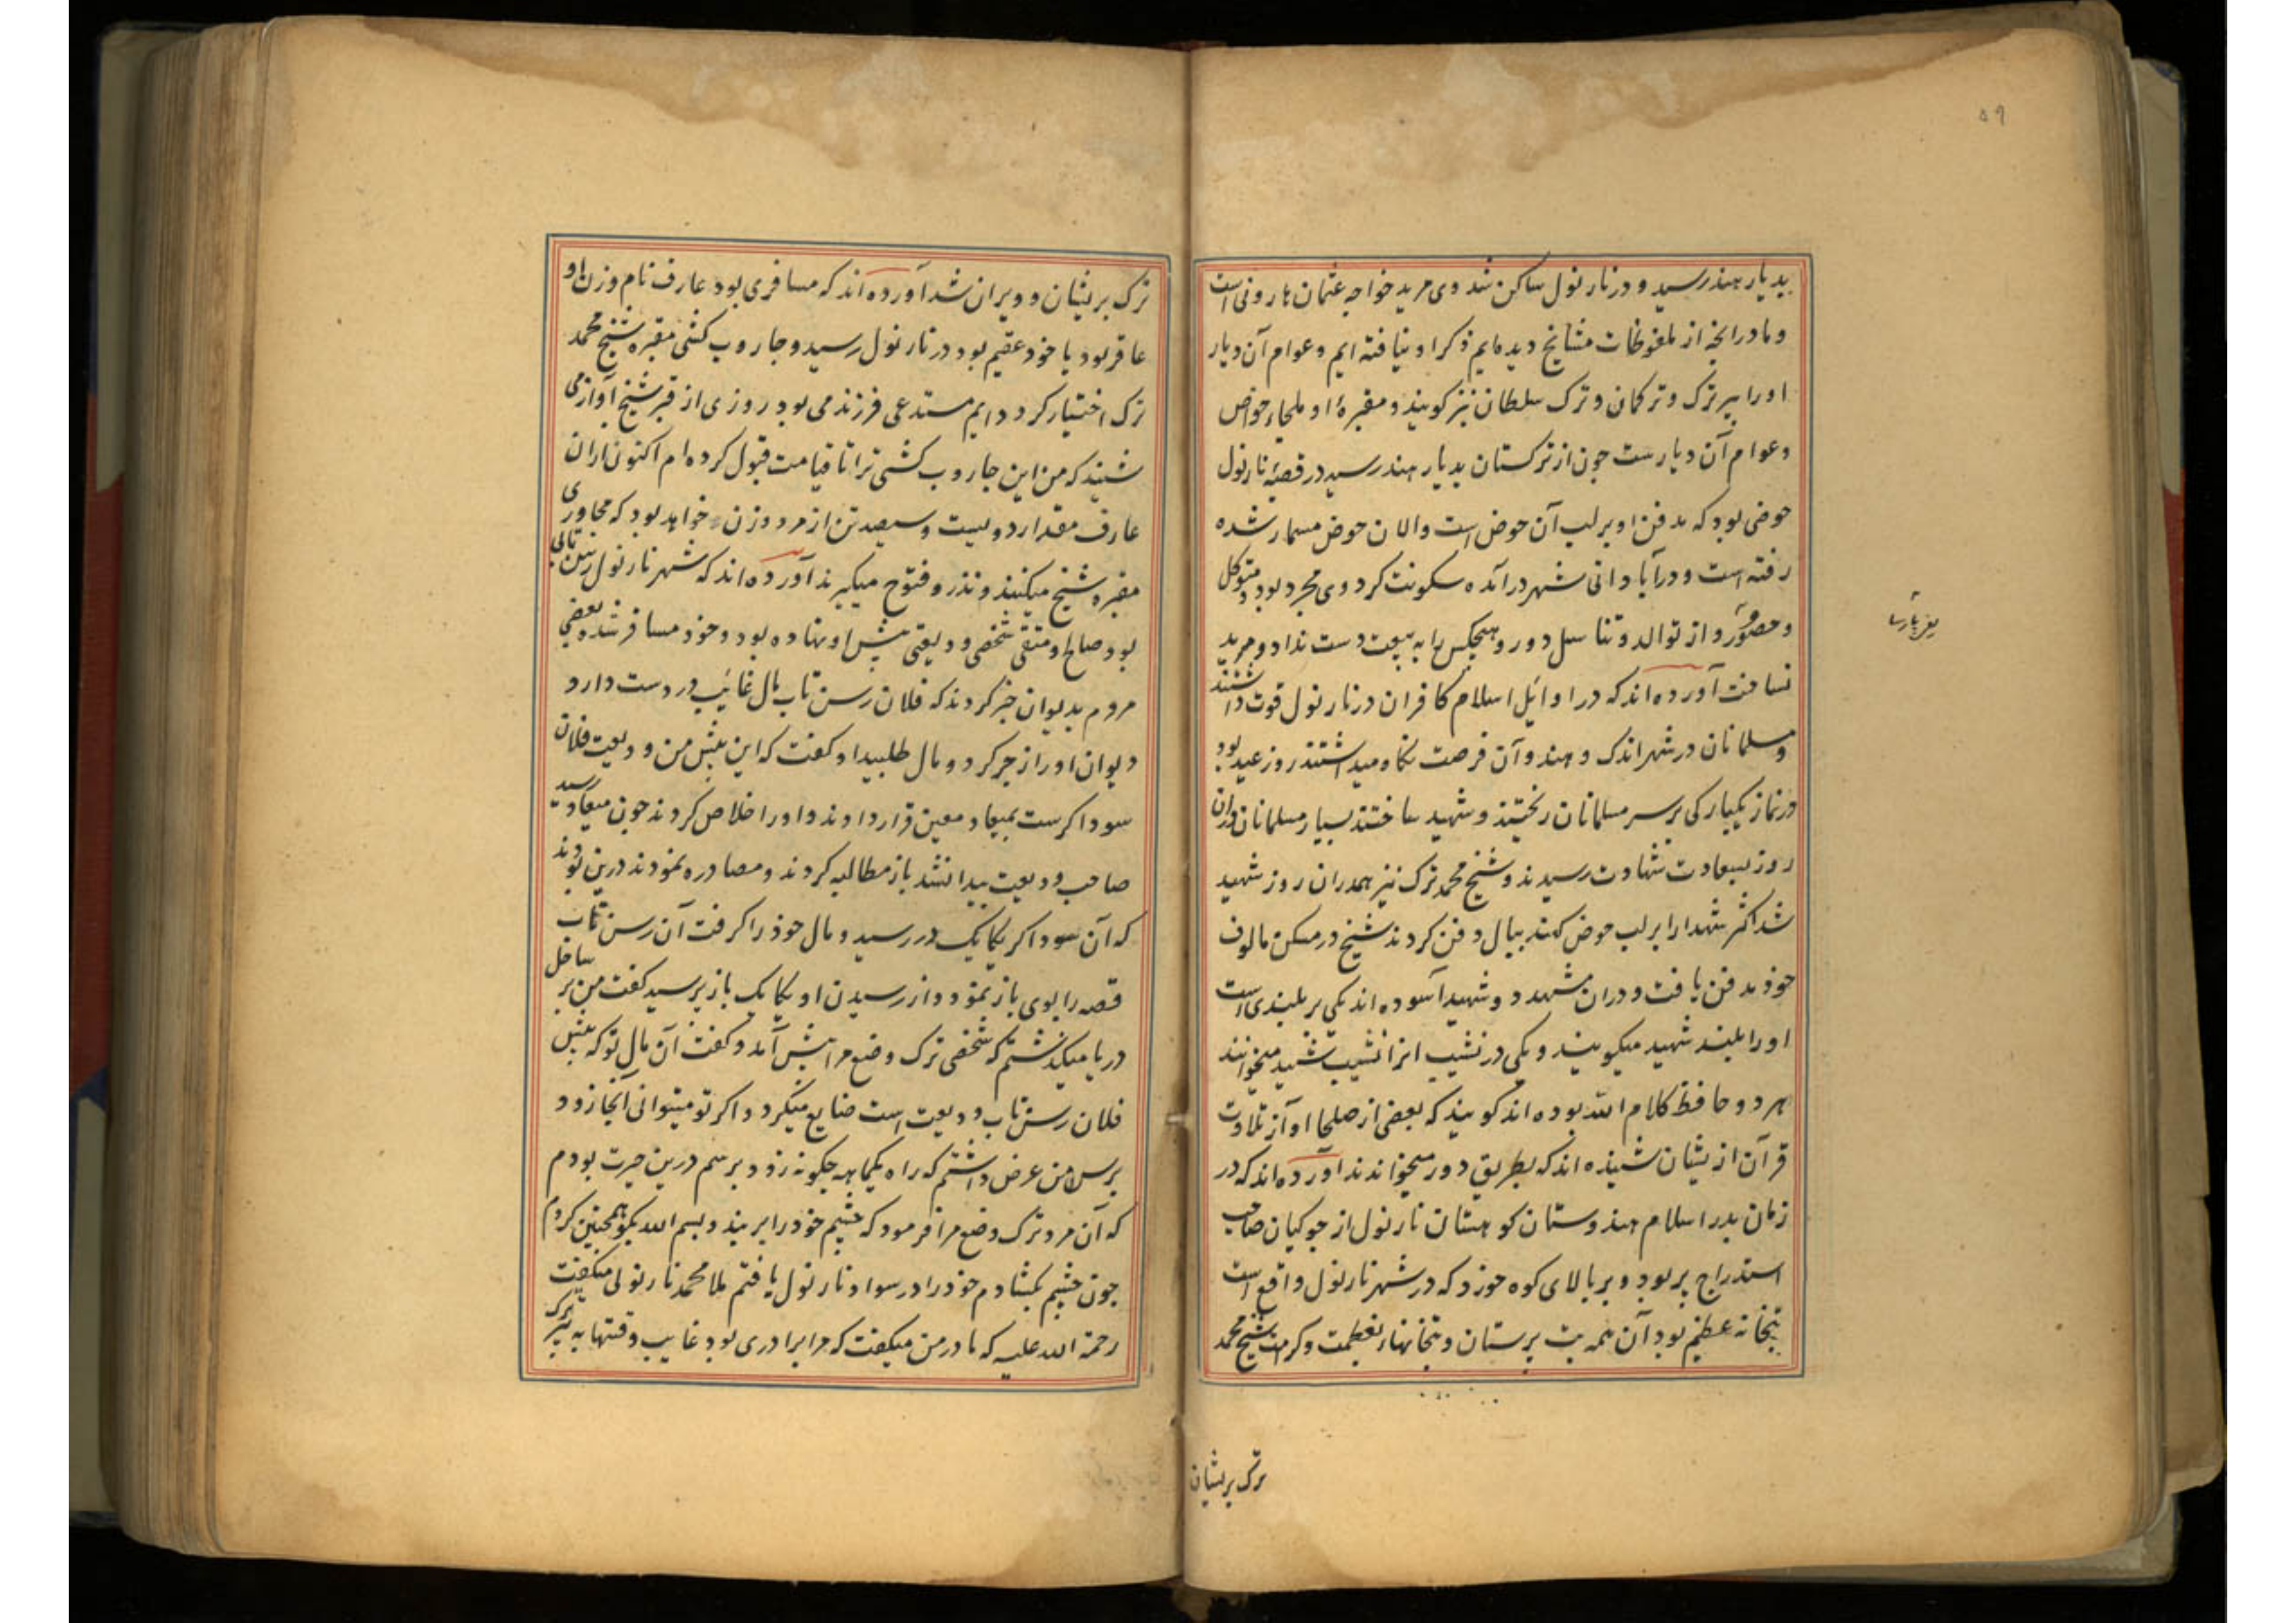 ۵۹
بدیار هند رسید و در نارنول ساکن شد وی مرید خواجه عثمان هارونی است
و ما در انچه از ملفوظات مشایخ دیده‌ایم ذکر او نیافته ایم و عوام آن دیار
او را پیر ترک و ترکمان و ترک سلطان نیز کویند و مقبرهٔ او ملجاء خواص
و عوام آن دیارست چون از ترکستان بدیار هند رسید در قصبهٔ نارنول
حوضی بود که مدفن او بر لب آن حوض است و الان حوض مسمار شده
رفته است و در آبادانی شهر در آمده سکونت کرد و وی مجرد بود و متوکل
و حصور و از توالد و تناسل دور و هیچکس را به بیعت دست نداد و مرید
نساخت آورده‌اند که در اوایل اسلام کافران در نارنول قوت داشتند
و مسلمانان در شهر اندک و هندوآن فرصت نکاه میداشتند روز عید بود
در نماز یکبارکی بر سر مسلمانان ریختند و شهید ساختند بسیار مسلمانان دران
روز بسعادت شهادت رسیدند و شیخ محمد ترک نیز همدران روز شهید
شد اکثر شهدا را بر لب حوض کهند بیال دفن کردند شیخ در مسکن مالوف
خود مدفن یافت و دران مشهد دو شهید آسوده اند یکی بر بلندی است
او را بلند شهید میکویند و یکی در نشیب انرا نشیب شهید میخوانند
هر دو حافظ کلام الله بوده اند کویند که بعضی از صلحا آواز تلاوت
قرآن از یشان شنیده اند که بطریق دور میخواندند آورده‌اند که در
زمان بدر اسلام هندوستان کوهستان نارنول از جوکیان صاحب
استدراج پر بود و بر بالای کوه خورد که در شهر نارنول واقع است
بتخانه عظیم بود آن همه بت پرستان و بتخانهاء بعظمت و کرامت شیخ محمد
ترک پریشان
ترک پریشان و ویران شد آورده‌اند که مسافری بود عارف نام و زن او
عاقر بود یا خود عقیم بود در نارنول رسید و جاروب کشی مقبره شیخ محمد
ترک اختیار کرد و دایم مستدعی فرزند می بود روزی از قبر شیخ آوازی
شنید که من این جاروب کشی ترا تا قیامت قبول کرده ام اکنون از ان
عارف مقدار دویست و سیصد تن از مرد و زن خواهد بود که مجاوری
مقبره شیخ میکنند و نذر و فتوح میکیرند آورده‌اند که شهر نارنول رسن تابی
بود صالح و متقی شخصی ودیعتی پیش او نهاده بود و خود مسافر شده بعضی
مردم بدیوان خبر کردند که فلان رسن تاب مال غائب در دست دارد
دیوان او را زجر کرد و مال طلبید او کفت که این پیش من ودیعت فلان
سوداکرست بمیعاد معین قرار دادند و او را خلاص کردند چون میعاد رسید
صاحب ودیعت پیدا نشد باز مطالبه کردند و مصادره نمودند درین بودند
که آن سوداکر یکایک در رسید و مال خود را کرفت آن رسن تاب
قصه را بوی باز نمود و از رسیدن او یکایک باز پرسید کفت من بر ساحل
دریا میکذشتم که شخصی ترک وضع مرا پیش آمد و کفت آن مال تو که پیش
فلان رسن تاب ودیعت است ضایع میکردد اکر تو میتوانی آنجا زود
برس من عرض داشتم که راه یکماهه چکونه زود برسم درین حیرت بودم
که آن مرد ترک وضع مرا فرمود که چشم خود را بر بند و بسم الله بکو همچنین کردم
چون چشم بکشادم خود را در سواد نارنول یافتم ملا محمد نارنولی میکفت
رحمة الله علیه که مادر من میکفت که مرا برادری بود غایب وقتها به پیر ترک